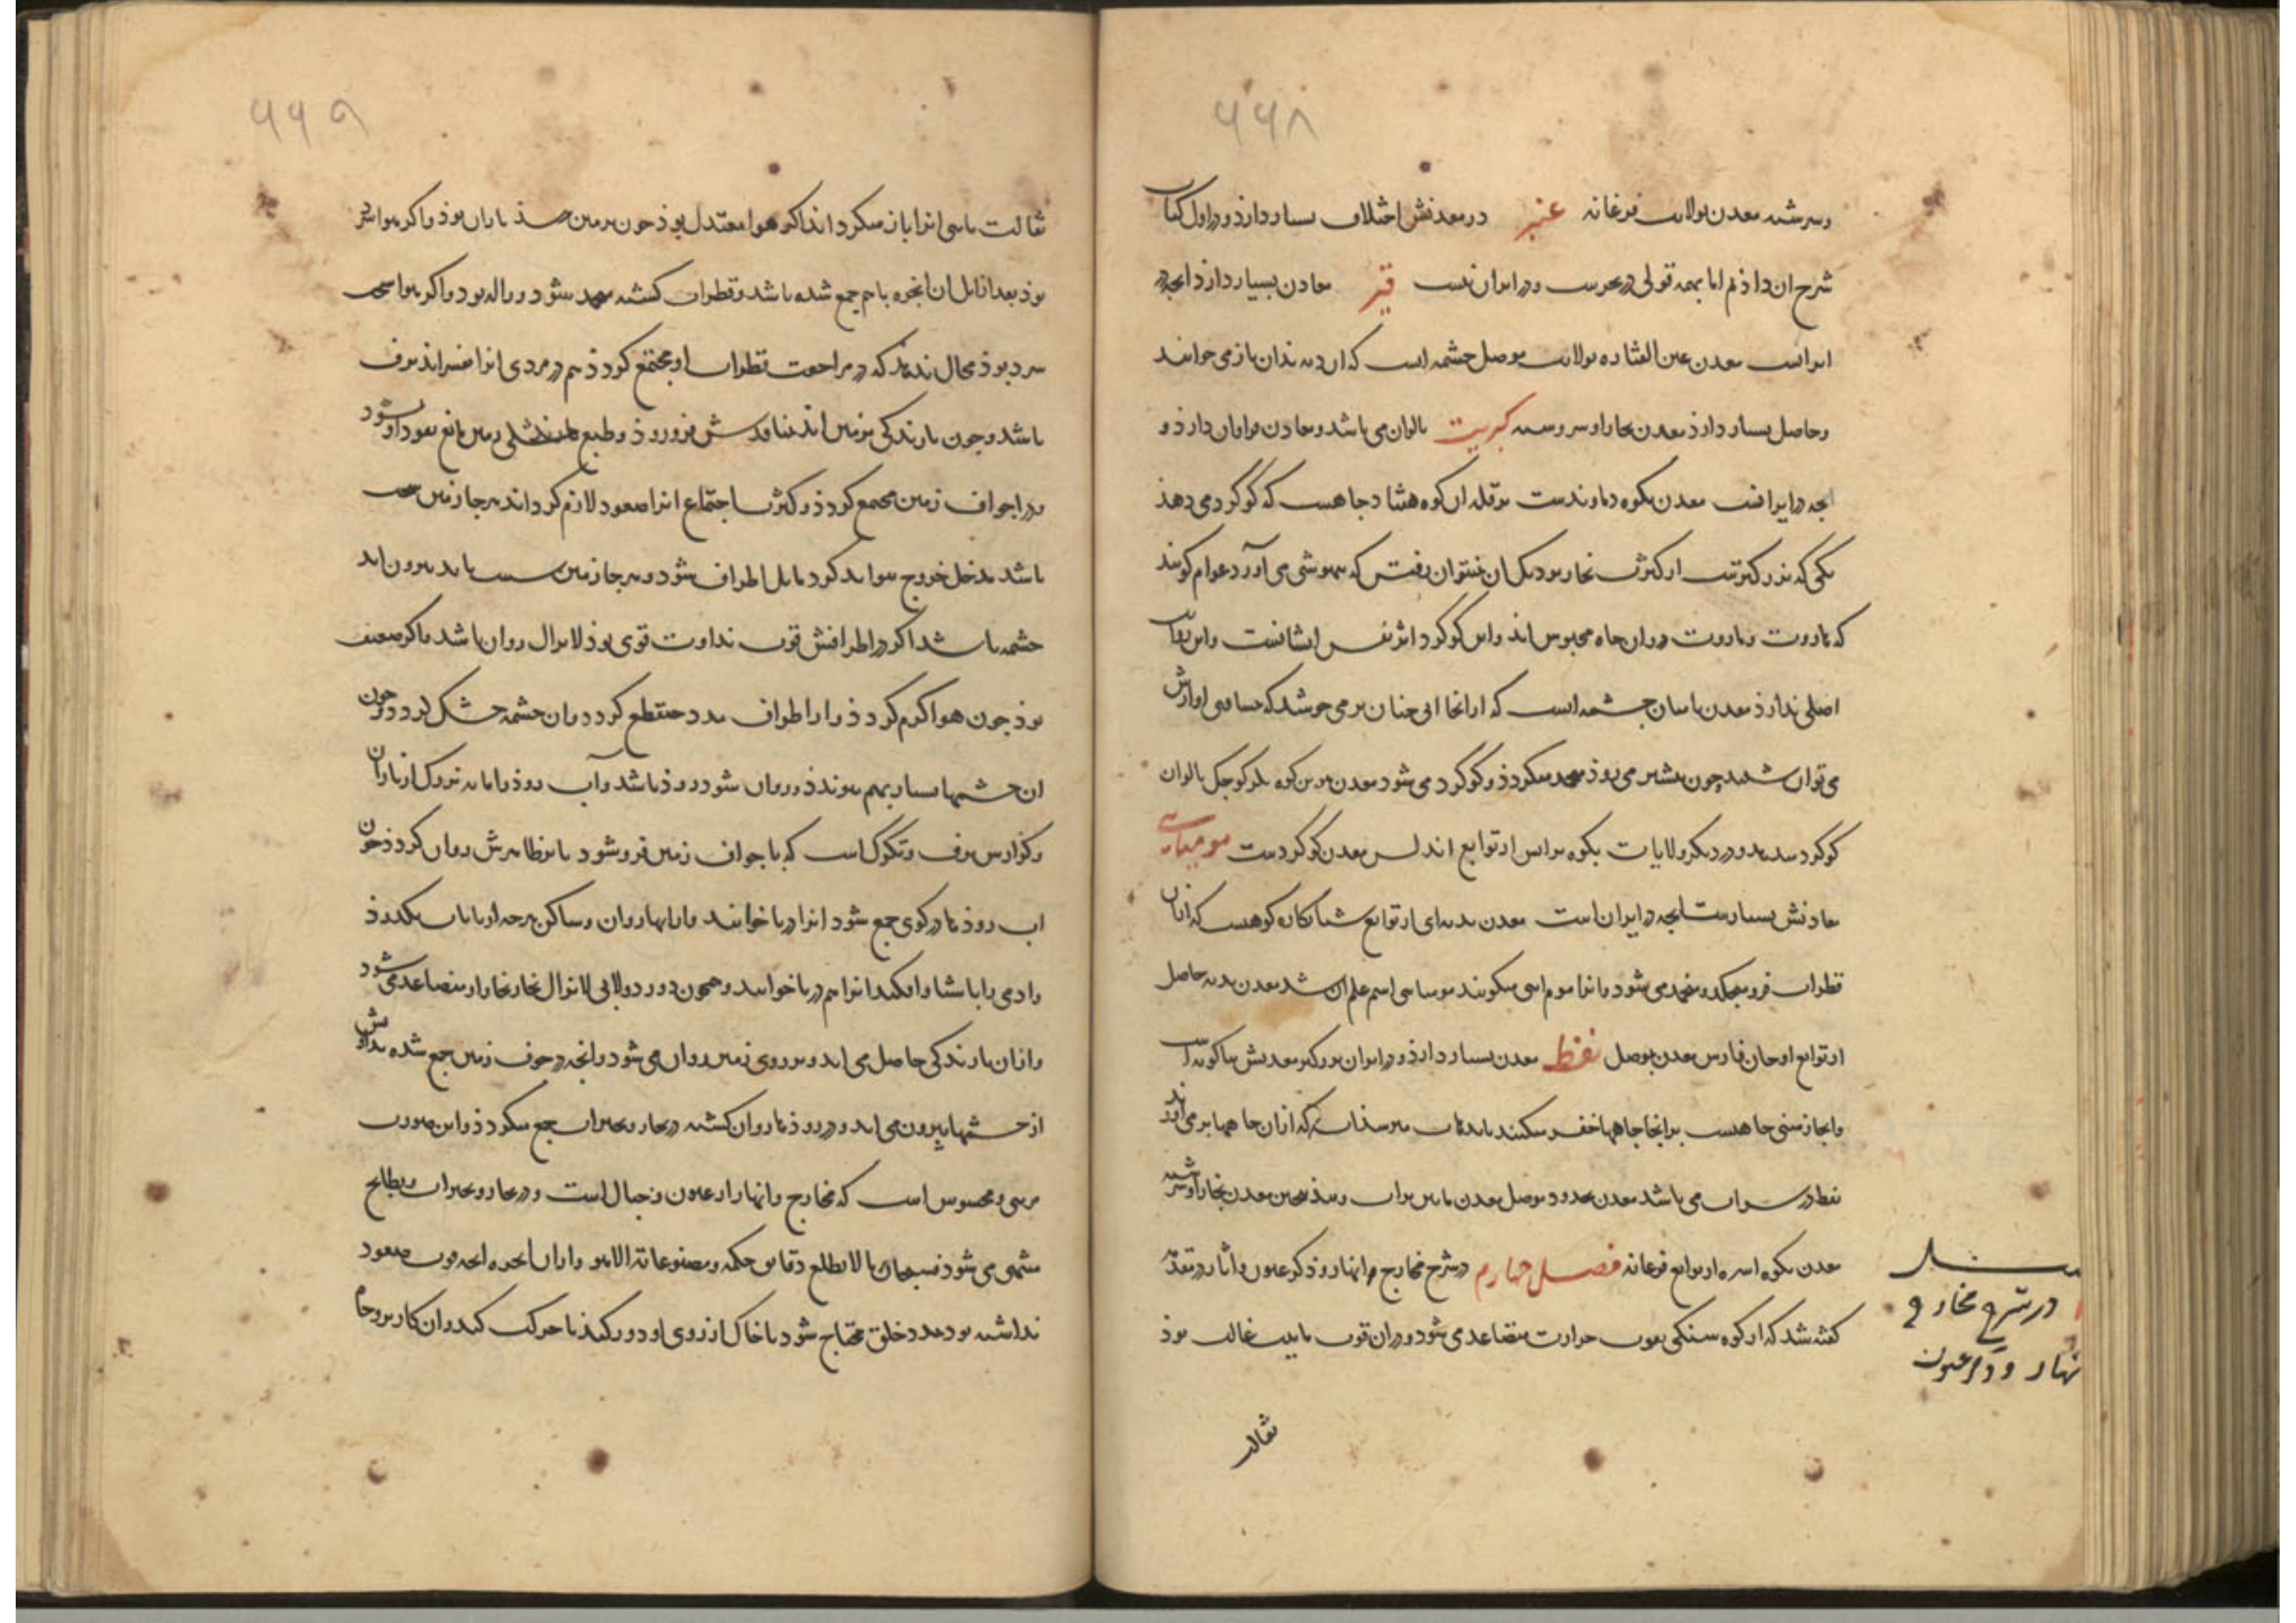 ۶۶۸
واسرشنه معدن بولایت فرغانه عنبر در معدنش اختلاف بسیار دارذ و در اول کتاب
شرح ان داذم اما بهمه قولی در بحرست و در ایران نیست قیر معادن بسیار دارذ انچه در
ایرانست معدن عین القیاره بولایت موصل چشمه ایست که ان دیه بذان باز می خوانند
و حاصل بسیار دارذ معدن بخارا و اسروسنه کبریت بالوان می باشد و معادن فراوان دارذ و
انچه در ایرانست معدن بکوه دماوندست بر قله ان کوه هفتاد جا هست که گوگرد می دهذ
یکی که بزرگترست از کثرت بخار نزدیک ان نتوان رفتن که بیهوشی می آورد عوام گویند
که هاروت و ماروت در ان چاه محبوس اند و این گوگرد اثر نفس ایشانست و این روایت
اصلی ندارذ معدن بامیان چشمه ایست که از انجا ابی چنان بر می جوشد که مسافتی اوازش
می توان شنید چون بیشتر می روذ منجمد میگردذ و گوگرد می شود معدن بزمین کوه بالوان
گوگرد میدهد و در دیگر ولایات بکوه براس از توابع اندلس معدن گوگردست مومیایی
معادنش بسیارست انچه در ایران است معدن بدیه ای از توابع شبانکاره کوهیست که ازان
قطرات فرو میچکد و منجمد می شود و انرا موم ایی میگویند مومیایی اسم علم ان شد معدن بدیه صاهل
از توابع ارجان فارس معدن بموصل نفط معدن بسیار دارذ و در ایران بزرگتر معدنش بباکویه است
و انجا زمینی جا هست بر انجا چاهها حفر میکنند تا بدان میرسذ ابی که ازان چاهها بر می اید
نفط در سر اب می باشد معدن بحدود موصل معدن معدن بخارا و اسرشنه
معدن بکوه اسبره از توابع فرغانه فصل چهارم در شرح مخارج انهار و ذکر عیون و آبار در مقدمه
گفته شد که از کوه سنگی بقوت حرارت متصاعد می شود و در ان قوت مایی غالب بوذ
در شرح مخارج
نهار و ذکر عیون
ثقالت
۶۶۹
ثقالت مایی انرا باز میگرداند اگر هوا معتدل بوذ چون بزمین رسذ باران بوذ و اگر هوا سرد
بوذ بعد ازانک ان ابخره باهم جمع شده باشد و قطرات گشته منجمد شود و ژاله بود و اگر هوا سخت
سرد بوذ مجال ندهذ که در مراجعت قطرات او مجتمع گردذ هم در سردی انرا بفسراند برف
باشد و چون بارندگی بزمین اید بنداوتش فرو روذ و طبع خشکی زمین مانع صعود او شود
در اجواف زمین مجتمع گردذ و کثرت اجتماع انرا صعود لازم گرداند هر جا زمین سخت
باشد مدخل خروج نتواند کرد مایل اطراف شود و هر جا زمین سست یابد بیرون اید
چشمه باشد اگر در اطرافش قوت نداوت قوی بوذ لایزال روان باشد و اگر ضعیف
بوذ چون هوا گرم گردذ و از اطراف مدد منقطع گردد و ان چشمه خشک گردد و چون
ان چشمها بسیار بهم پیوندذ و روان شود روذ باشد و آب روذ و اما به بزرگ از باران
و گزارش برف و تگرگ است که باجواف زمین فرو شود یا بر ظاهرش روان گردذ چون
اب روذها در گوی جمع شود انرا دریا خوانند و ابهای روان و ساکن هرچه از بیابان بگذرذ
وادی باشذ و انرا هم دریا خوانند و همچون دور دولابی لایزال بخار بخار ازو متصاعد می شود
و ازان بارندگی حاصل می اید و بر روی زمین روان می شود و انچه در جوف زمین جمع شده باشد
از چشمها بیرون می اید و در روذها روان گشته در بحار و بحیرات جمع میگردذ و این صورت
مرئی و محسوس است که مخارج انهار از عیون و جبال است و در بحار و بحیرات و بطایح
منتهی می شود فسبحان من لا یطلع دقایق حکمه و مصنوعاته الا هو و ازان ابخره انچه قوت صعود
نداشته بود بمدد خلق محتاج شود تا خاک از روی او دور کنند تا حرکت کند و ان کاریز و چاه